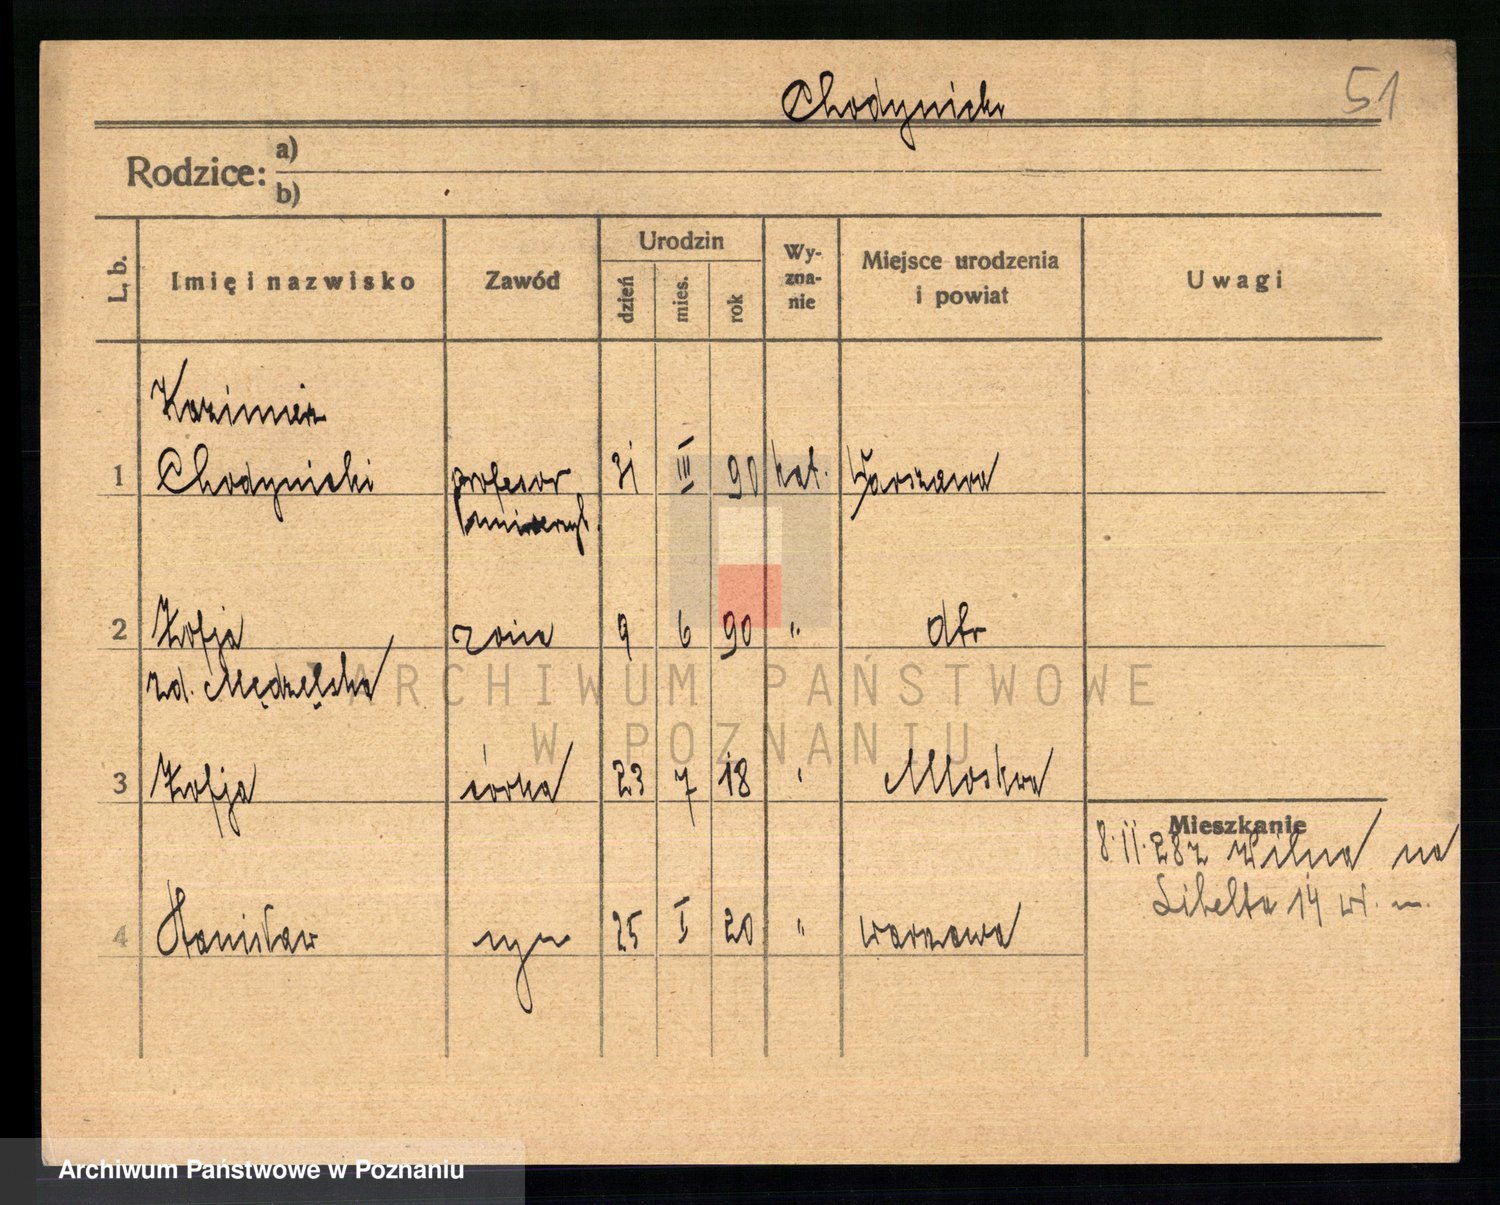 Chodynicki
51
Rodzice: a)
b)
L. b. Imię i nazwisko Zawód Urodzin dzień mies. rok Wy-zna-nie Miejsce urodzenia i powiat Uwagi
Kazimierz
1 Chodynicki profesor 31 III 90 kat. Warszawa
uniwersyt.
2 Zofja żona 9 6 90 "
zd.
ARCHIWUM PAŃSTWOWE
W POZNANIU
3 Zofja córka 23 7 18 " Moskwa
Mieszkanie
8.II.28 z Wilna na
Libelta 14
4 Stanisław syn 25 I 20 " Warszawa
Archiwum Państwowe w Poznaniu